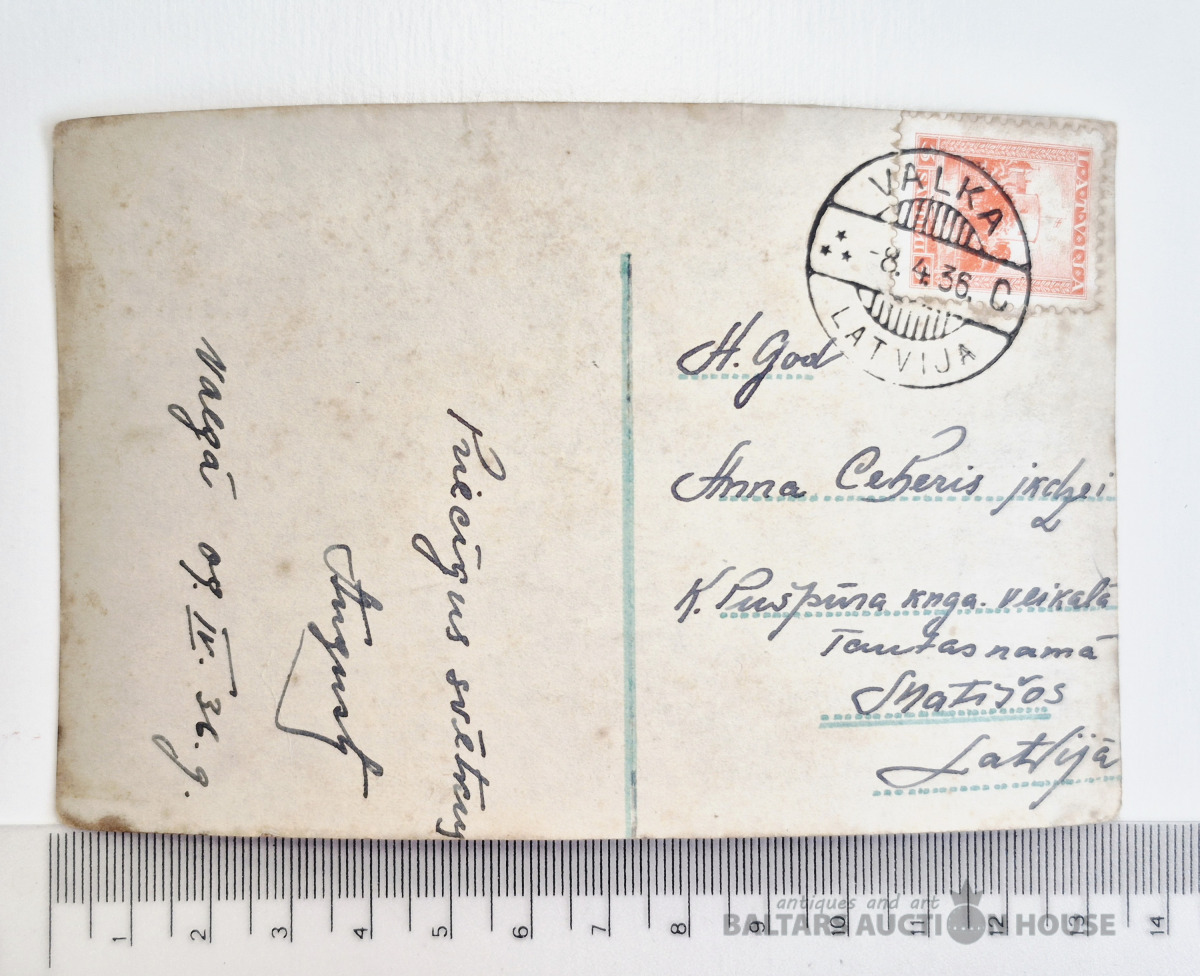 Priecīgus svētkus
August
Valgā 08. IV. 36. g.
LATVIJA
VALKA
-8. 4. 36. C
LATVIJA
H. God
Anna Ceħeris jkdzei
K. Pušpūra knga. veikalā
Tautas namā
Matīšos
Latvijā
1 2 3 4 5 6 7 8 9 10 11 12 13 14
antiques and art
BALTARS AUCTION HOUSE